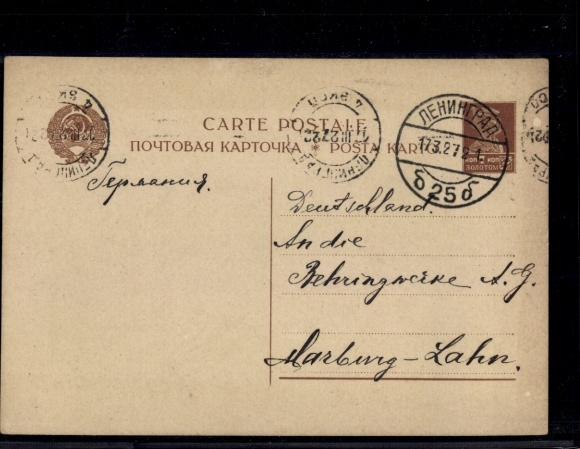 CARTE POSTALE
ПОЧТОВАЯ КАРТОЧКА * POSTA KARTO
ЛЕНИНГРАД
17.3.27
б 25 б
ЗОЛОТОМ
Германия.
Deutschland.
An die
Behringwerke A.G.
Marburg-Lahn.